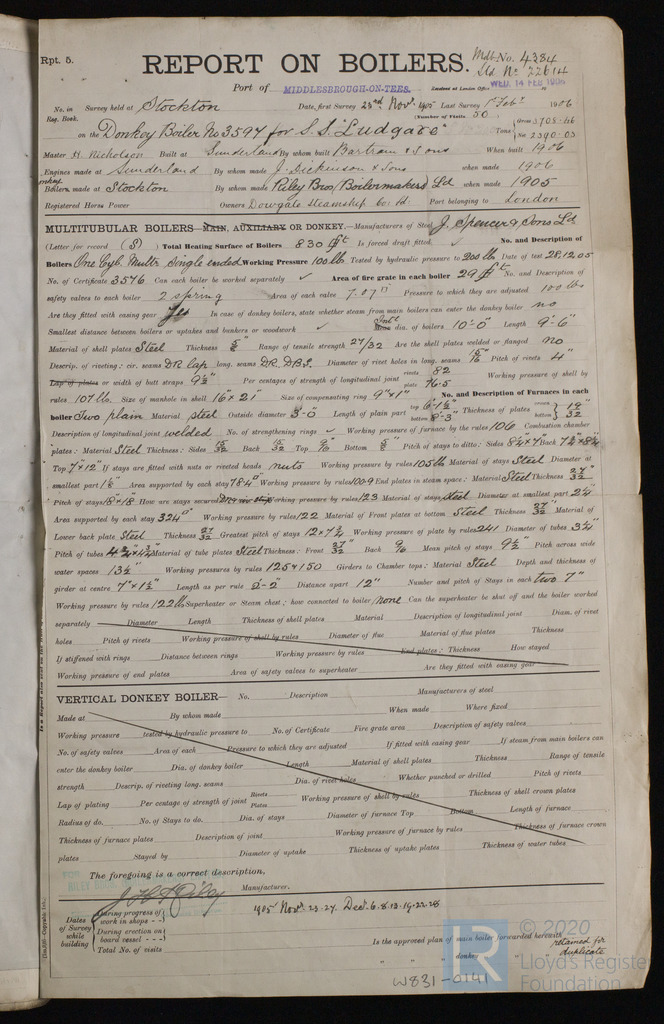 Rpt. 5.
REPORT ON BOILERS.
Mdb. No. 4384
Port of MIDDLESBROUGH-ON-TEES.
WED. 14 FEB 1906
No. in Survey held at Stockton Date, first Survey 23rd Novr. 1905 Last Survey 1st Feb. 1906
Reg. Book. (Number of Visits 50)
on the Donkey Boiler No 3597 for S.S. "Ludgate" Tons
Master H. Nicholson Built at Sunderland By whom built Bartram & Sons When built 1906
Engines made at Sunderland By whom made J. Dickinson & Sons when made 1906
Boilers made at Stockton By whom made Riley Bros (Boilermakers) Ld when made 1905
Registered Horse Power Owners Dowgate Steamship Co. Ld. Port belonging to London
MULTITUBULAR BOILERS MAIN, AUXILIARY OR DONKEY.—Manufacturers of Steel J. Spencer & Sons Ld
(Letter for record (S)) Total Heating Surface of Boilers 830 ft Is forced draft fitted No. and Description of
Boilers One Cyl. Mult. Single ended Working Pressure 100 lb Tested by hydraulic pressure to 200 lb Date of test 28.12.05
No. of Certificate 3576 Can each boiler be worked separately ✓ Area of fire grate in each boiler 29 ft No. and Description of
safety valves to each boiler 2 spring Area of each valve 7.07" Pressure to which they are adjusted 100 lb
Are they fitted with easing gear Yes In case of donkey boilers, state whether steam from main boilers can enter the donkey boiler no
Smallest distance between boilers or uptakes and bunkers or woodwork ✓ dia. of boilers 10'-0" Length 9'-6"
Material of shell plates Steel Thickness 5/8 Range of tensile strength 27/32 Are the shell plates welded or flanged no
Descrip. of riveting: cir. seams DR Lap long. seams DR. DBS. Diameter of rivet holes in long. seams 15/16 Pitch of rivets 4"
Lap of plates or width of butt straps 9½" Per centages of strength of longitudinal joint rivets 82 plate 76.5 Working pressure of shell by
rules 107 lb. Size of manhole in shell 16" x 21" Size of compensating ring 9" x 1" No. and Description of Furnaces in each
boiler Two plain Material steel Outside diameter 3'-0" Length of plain part top 6'-1½" bottom 8'-3" Thickness of plates crown bottom } 19/32"
Description of longitudinal joint welded No. of strengthening rings ✓ Working pressure of furnace by the rules 106 Combustion chamber
plates: Material Steel Thickness: Sides 15/32 Back 15/32 Top 9/16 Bottom 5/8 Pitch of stays to ditto: Sides 8¼ x 7" Back
Top 7" x 12" If stays are fitted with nuts or riveted heads nuts Working pressure by rules 105 lb Material of stays Steel Diameter at
smallest part Area supported by each stay Working pressure by rules 100.9 End plates in steam space: Material Steel Thickness 27/32"
Pitch of stays 18" x 18" How are stays secured Working pressure by rules 123 Material of stays steel Diameter at smallest part 2¼"
Area supported by each stay 324" Working pressure by rules 122 Material of Front plates at bottom Steel Thickness 27/32" Material of
Lower back plate Steel Thickness 27/32 Greatest pitch of stays 12" x 7¾ Working pressure of plate by rules 241 Diameter of tubes 3¼"
Pitch of tubes Material of tube plates Steel Thickness: Front 27/32" Back 9/16 Mean pitch of stays 9½" Pitch across wide
water spaces 13½" Working pressures by rules 125 & 150 Girders to Chamber tops: Material Steel Depth and thickness of
girder at centre 7" x 1½" Length as per rule 2'-2" Distance apart 12" Number and pitch of Stays in each two 7"
Working pressure by rules 122 lb Superheater or Steam chest; how connected to boiler none Can the superheater be shut off and the boiler worked
separately Diameter Length Thickness of shell plates Material Description of longitudinal joint Diam. of rivet
holes Pitch of rivets Working pressure of shell by rules Diameter of flue Material of flue plates Thickness
If stiffened with rings Distance between rings Working pressure by rules End plates: Thickness How stayed
Working pressure of end plates Area of safety valves to superheater Are they fitted with easing gear
VERTICAL DONKEY BOILER— No. Description Manufacturers of steel
Made at By whom made When made Where fixed
Working pressure tested by hydraulic pressure to No. of Certificate Fire grate area Description of safety valves
No. of safety valves Area of each Pressure to which they are adjusted If fitted with easing gear If steam from main boilers can
enter the donkey boiler Dia. of donkey boiler Length Material of shell plates Thickness Range of tensile
strength Descrip. of riveting long. seams Dia. of rivet holes Whether punched or drilled Pitch of rivets
Lap of plating Per centage of strength of joint Rivets Plates Working pressure of shell by rules Thickness of shell crown plates
Radius of do. No. of Stays to do. Dia. of stays Diameter of furnace Top Bottom Length of furnace
Thickness of furnace plates Description of joint Working pressure of furnace by rules Thickness of furnace crown
plates Stayed by Diameter of uptake Thickness of uptake plates Thickness of water tubes
The foregoing is a correct description,
Manufacturer.
Dates of Survey while building
During progress of work in shops - - 1905 Nov. 23.27. Dec. 6.8.13.19.22.28
During erection on board vessel - - -
Total No. of visits
Is the approved plan of main boiler forwarded herewith retained for duplicate
" " " donkey " " "
W831-0141
© 2020
Lloyd's Register
Foundation